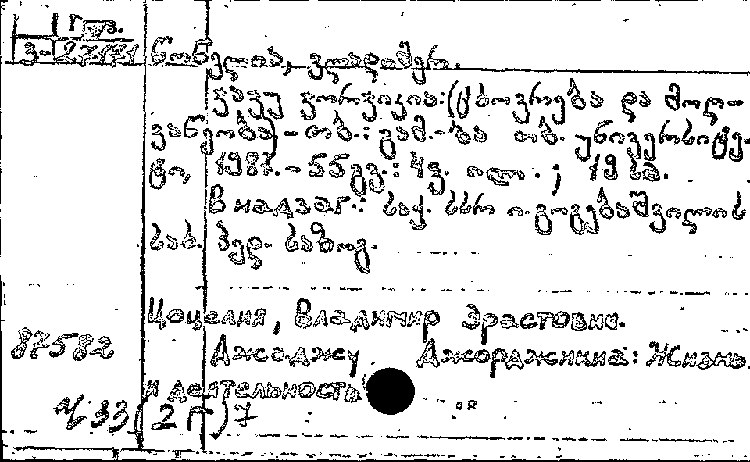 1 Груз.
3-27171 წოწელია, ვლადიმერ.
ჯაჯუ ჯორჯიკია: (ცხოვრება და მოღ-
ვაწეობა) - თბ.: გამ.-ბა თბ. უნივერსიტე-
ტი, 1987. - 55 გვ.: 4 ფ. ილ.; 19 სმ.
В надзаг.: საქ. სსრ ი. გოგებაშვილის
სახ. პედ. საზოგ.
Цоцелия, Владимир Эрастович.
87582 Джаджу Джорджикиа: Жизнь
и деятельность
Ч 33(2Г)7